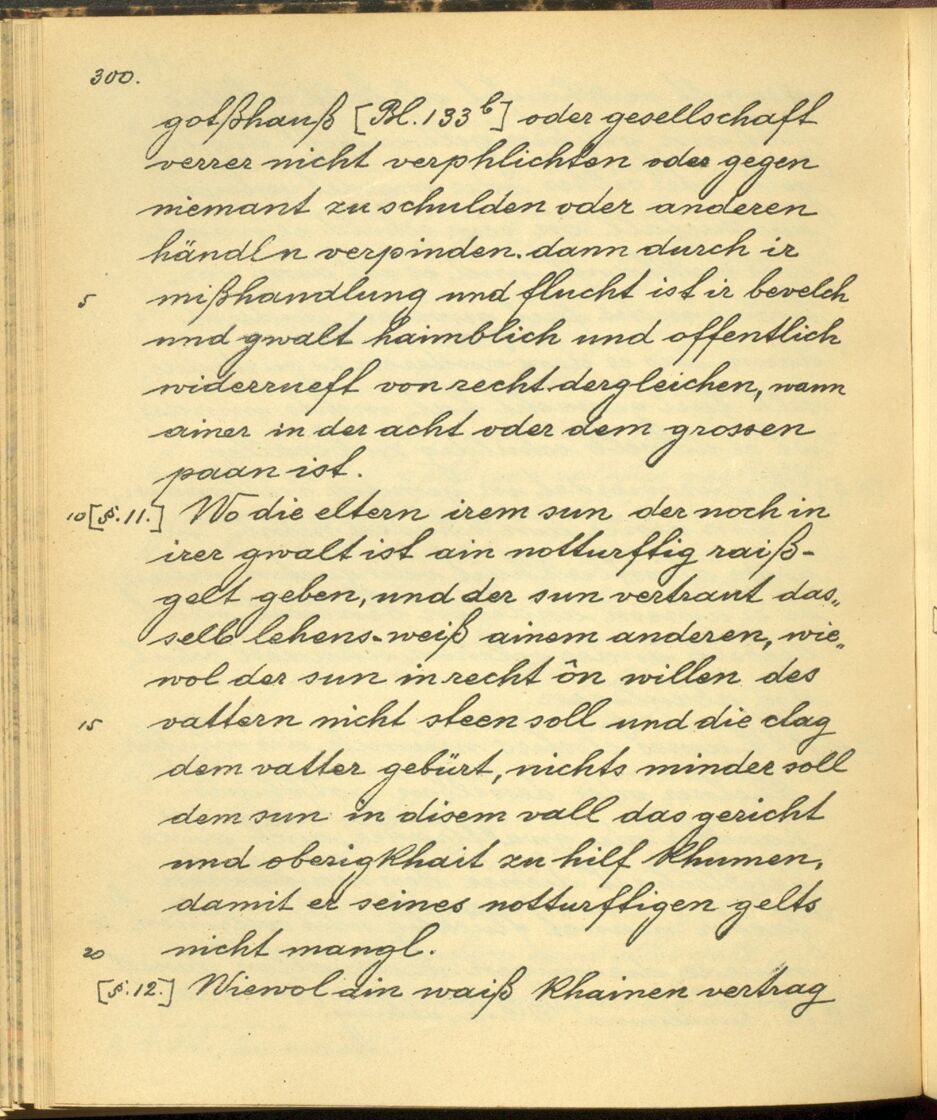 300.
gotßhauß [Bl. 133b] oder gesellschaft
verrer nicht verphlichten oder gegen
niemant zu schulden oder anderen
händln verpinden. dann durch ir
5 mißhandlung und flucht ist ir bevelch
und gwalt haimblich und offentlich
widerrueft von recht dergleichen, wann
ainer in der acht oder dem grossen
paan ist.
10 [§. 11.] Wo die eltern irem sun der noch in
irer gwalt ist ain notturftig raiß-
gelt geben, und der sun vertraut das„
selb lehens-weiß ainem anderen, wie„
wol der sun in recht ôn willen des
15 vattern nicht steen soll und die clag
dem vatter gebürt, nichts minder soll
dem sun in disem vall das gericht
und oberigkhait zu hilf khumen,
damit er seines notturftigen gelts
20 nicht mangl.
[§. 12.] Wiewol ain waiß khainen vertrag